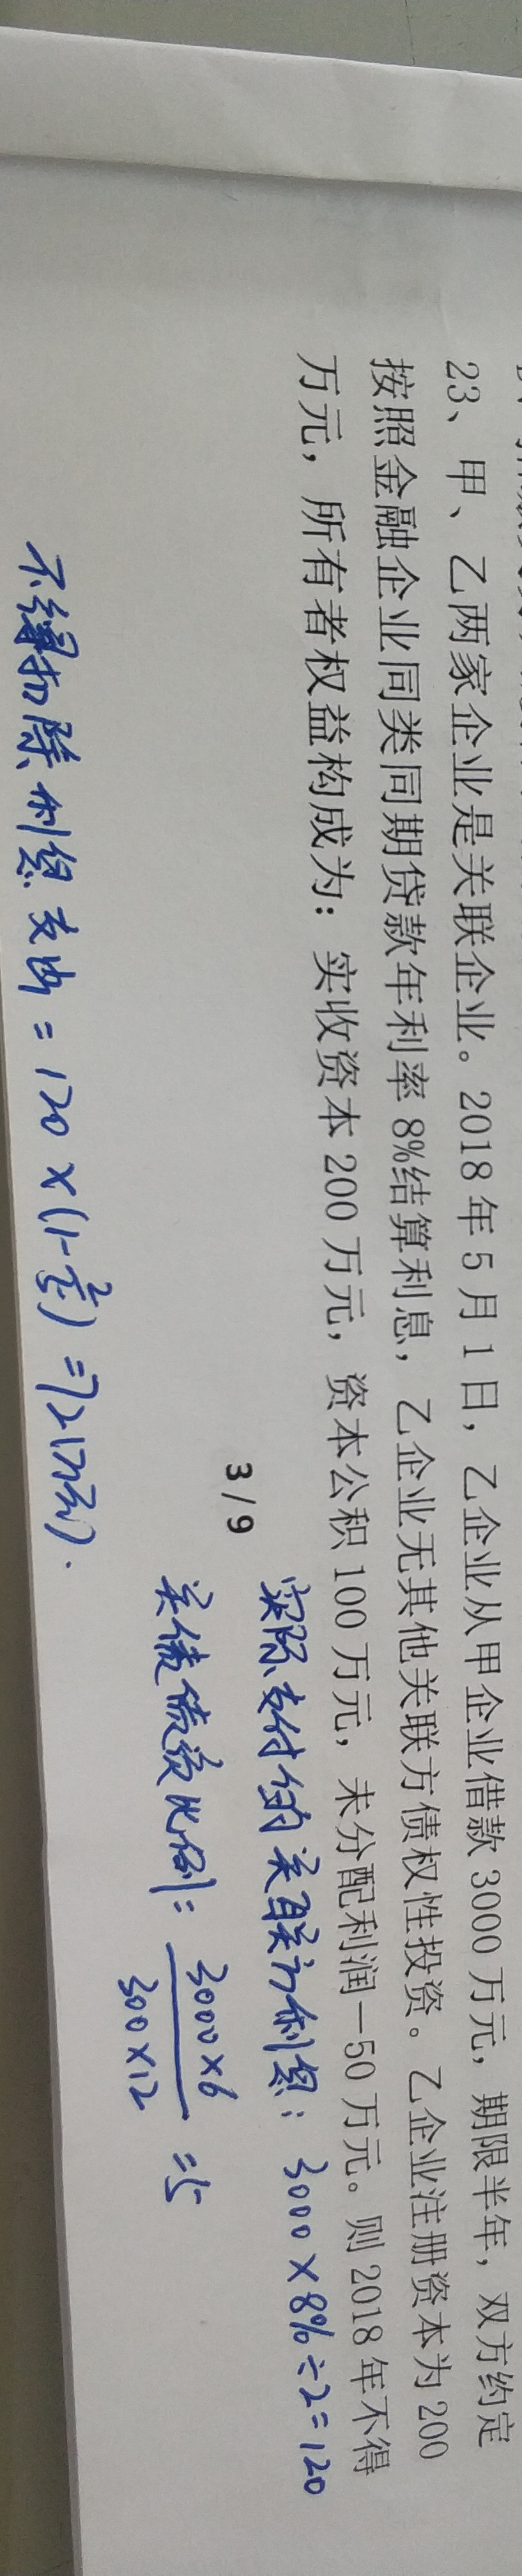 23、甲、乙两家企业是关联企业。2018年5月1日，乙企业从甲企业借款3000万元，期限半年，双方约定
按照金融企业同类同期贷款年利率8%结算利息，乙企业无其他关联方债权性投资。乙企业注册资本为200
万元，所有者权益构成为：实收资本200万元，资本公积100万元，未分配利润－50万元。则2018年不得
实际支付的关联方利息：3000×8%÷2=120
3/9
关债资比例：3000×6/300×12=5
不得扣除利息支出=120×(1-2/5)=72(万元).